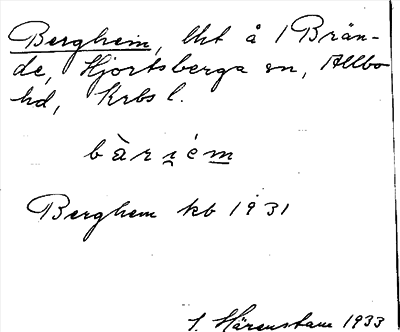 Berghem, lht å 1 Brän-
de, Hjortsberga sn, Allbo
hd, Krbs l.
bàriém
Berghem kb 1931
S. Härenstam 1933